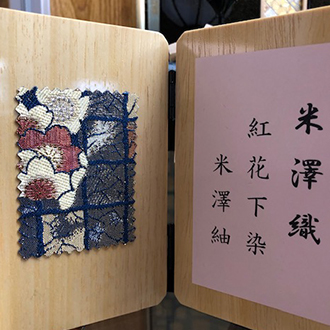 米澤織
紅花下染
米澤紬